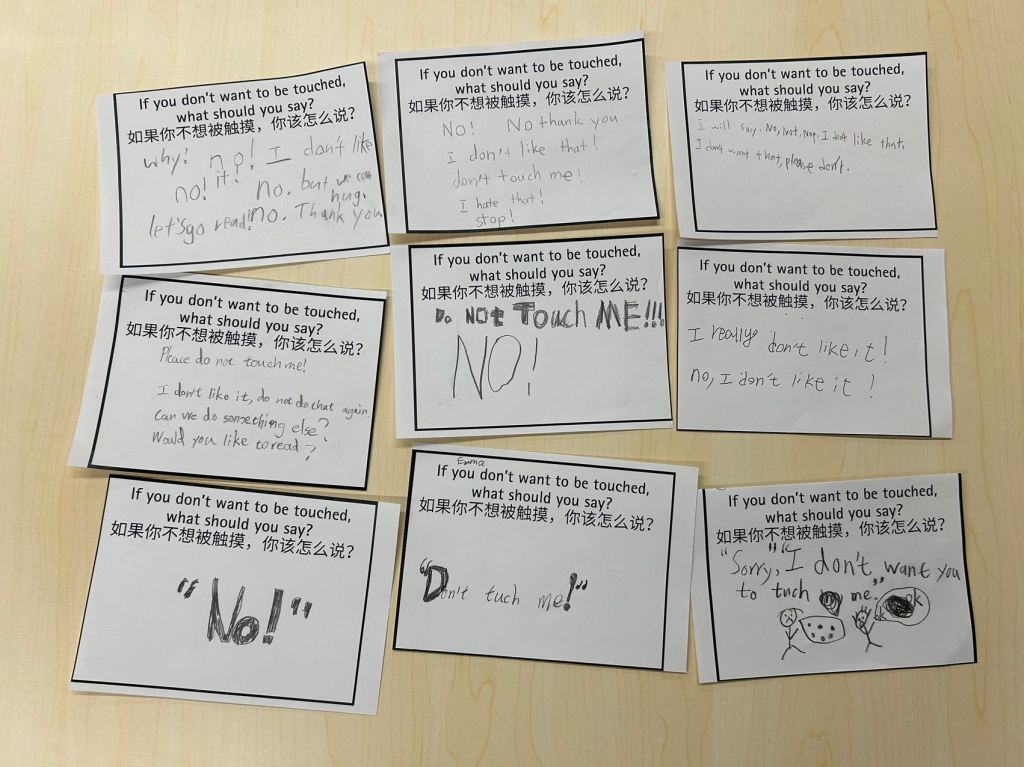 If you don't want to be touched,
what should you say?
如果你不想被触摸，你该怎么说？
why! no! I don't like
no! it? no. but we can
hug.
let's go read! no. Thank you
If you don't want to be touched,
what should you say?
如果你不想被触摸，你该怎么说？
NO! No thank you
I don't like that!
don't touch me!
I hate that!
stop!
If you don't want to be touched,
what should you say?
如果你不想被触摸，你该怎么说？
I will say. No, Not, Nop. I dont like that,
I don't want that, please don't.
If you don't want to be touched,
what should you say?
如果你不想被触摸，你该怎么说？
Please do not touch me!
I don't like it, do not do that again.
Can we do something else?
Would you like to read?
If you don't want to be touched,
what should you say?
如果你不想被触摸，你该怎么说？
Do NOt Touch ME!!!
NO!
If you don't want to be touched,
what should you say?
如果你不想被触摸，你该怎么说？
I really don't like it!
no, I don't like it!
If you don't want to be touched,
what should you say?
如果你不想被触摸，你该怎么说？
"No!"
Emma
If you don't want to be touched,
what should you say?
如果你不想被触摸，你该怎么说？
"Don't tuch me!"
If you don't want to be touched,
what should you say?
如果你不想被触摸，你该怎么说？
"Sorry," "I don't want you
to tuch me."
ok